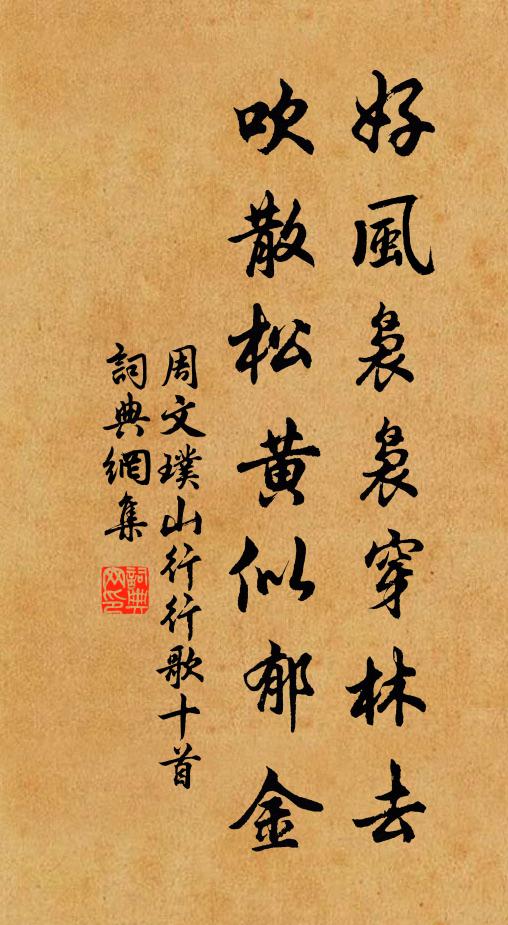 好風裊裊穿林去
吹散松黃似郁金
周文璞山行行歌十首
詞典網集
詞典網印